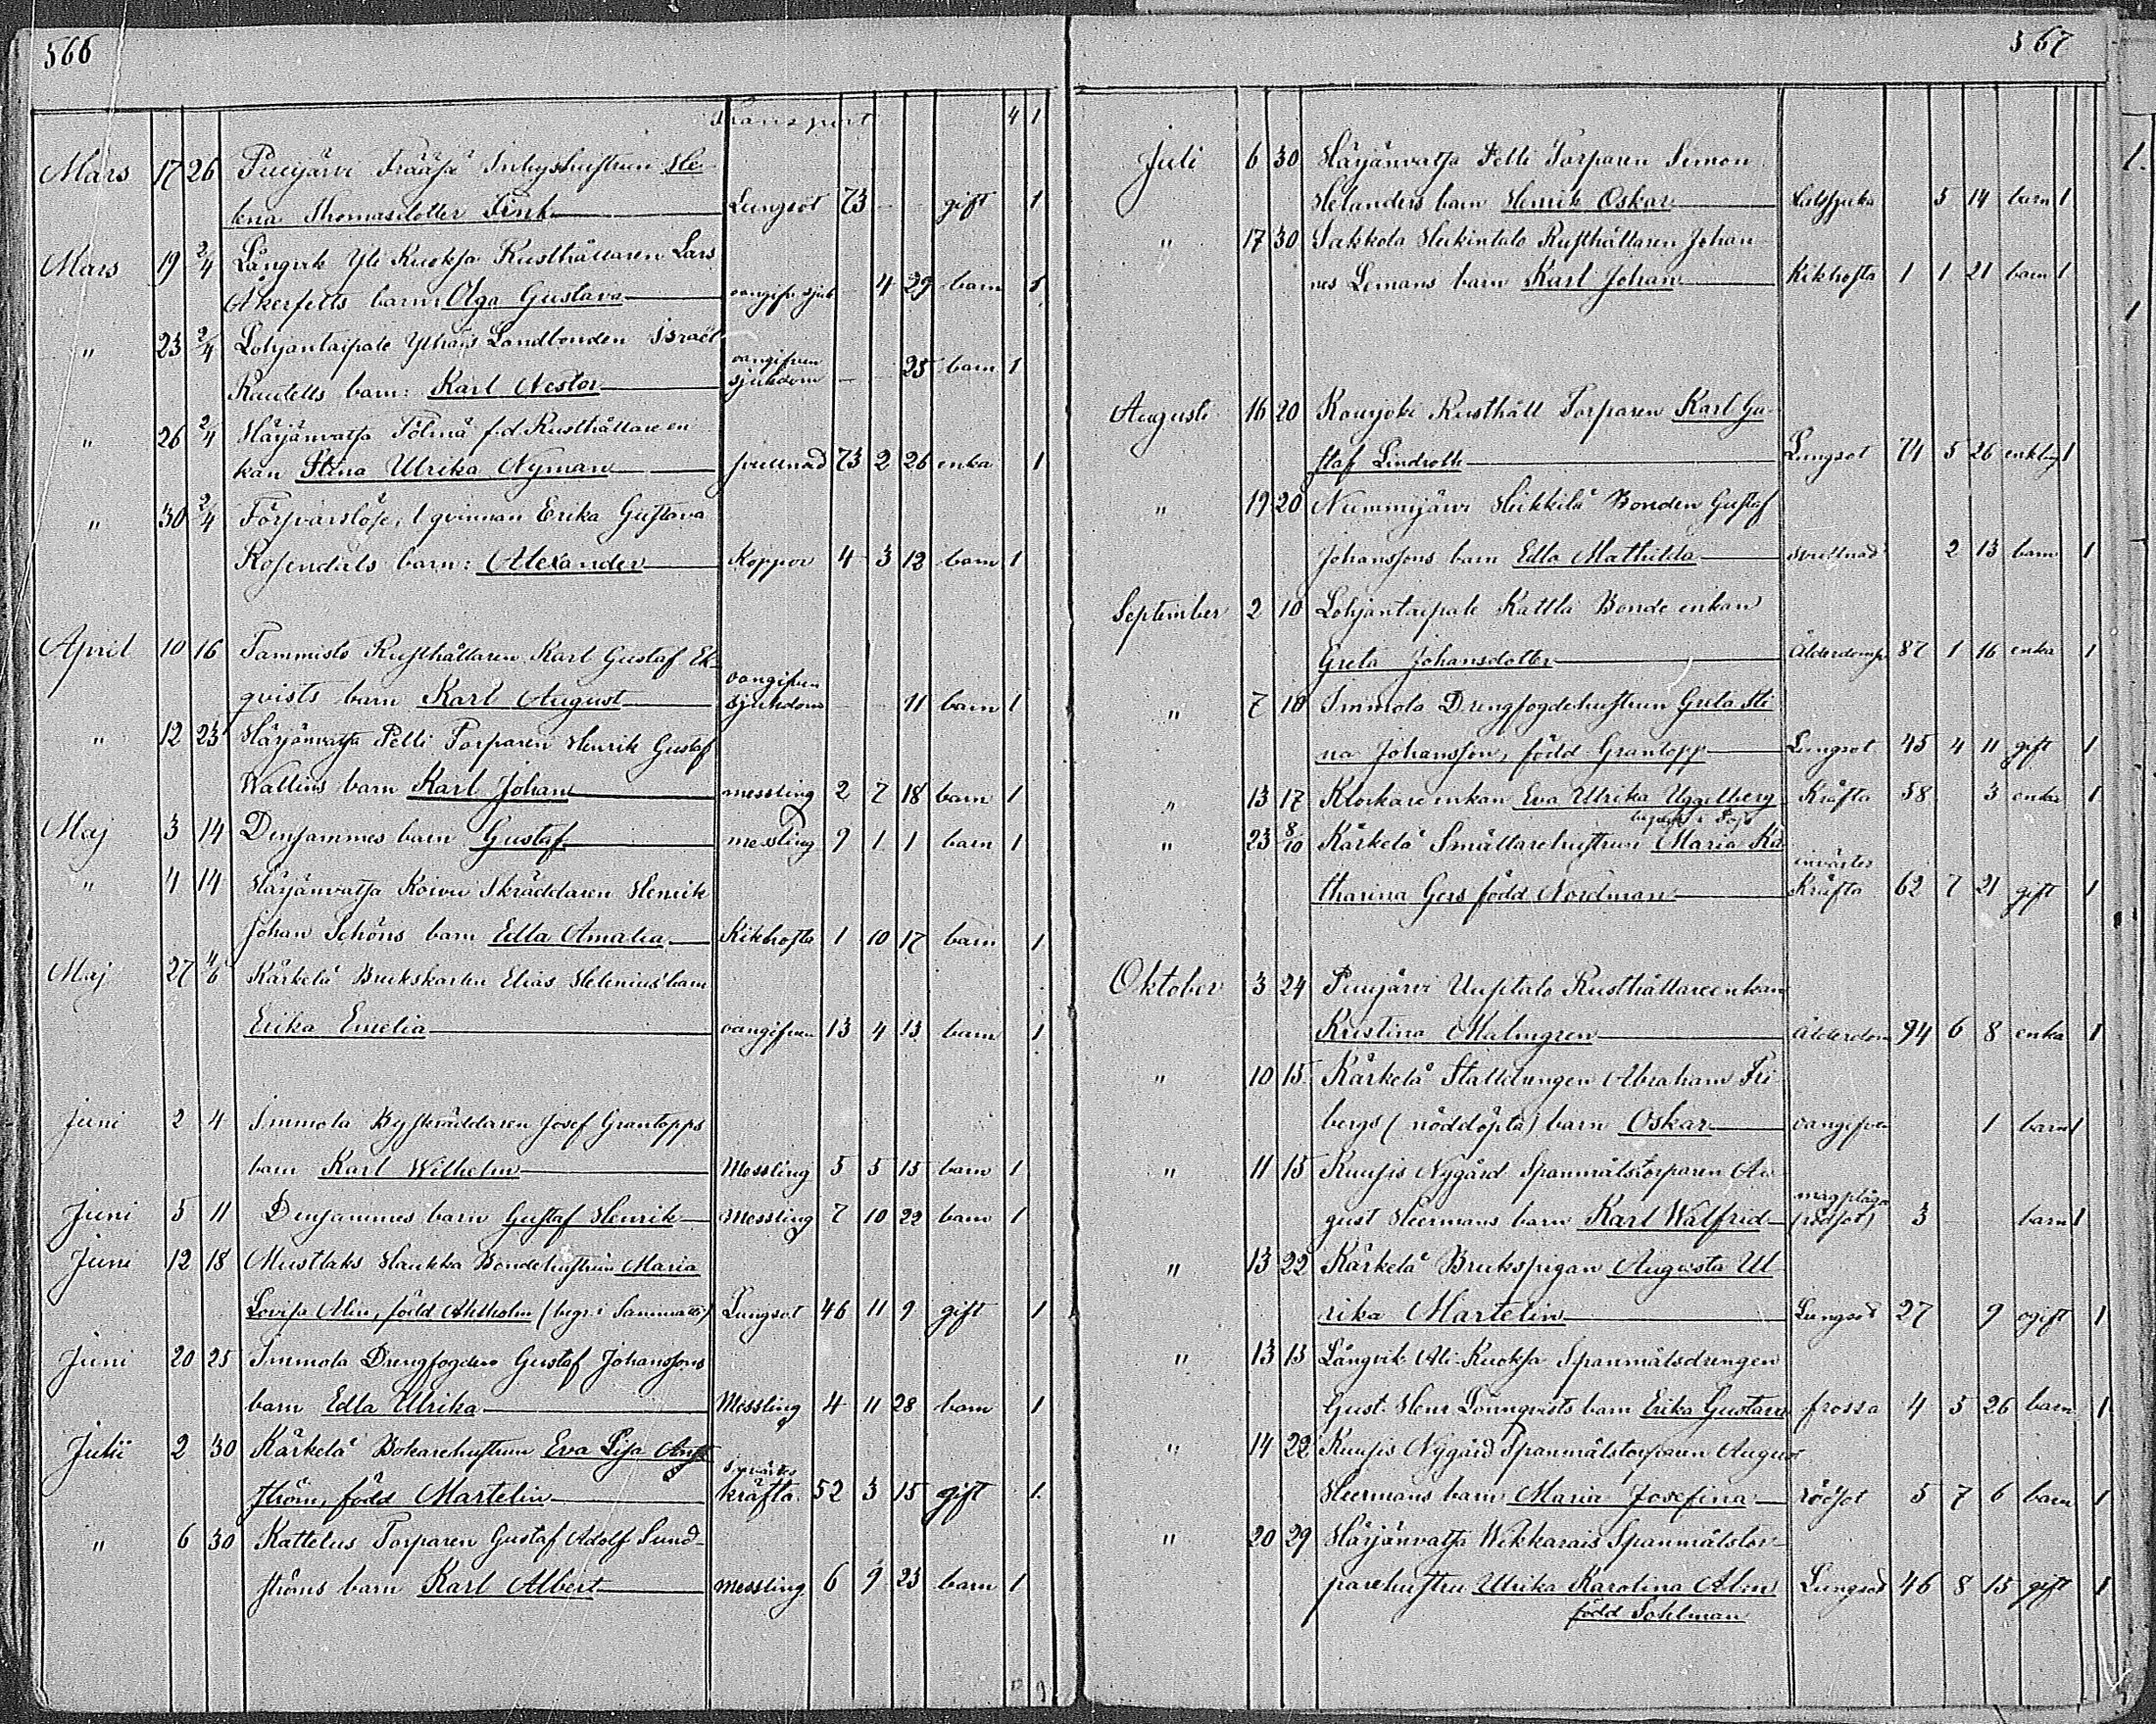 566
Transport 4 1
Mars 17 26 Puujärvi Fräätjä Inhyshustrun He-
lena Thomasdotter Fink Lungsot 73 gift 1
Mars 19 2/4 Långvik Yli Kuoksa Rusthållaren Lars
Åkerfelts barn Olga Gustava oangifv sjuk 4 29 barn 1
" 23 2/4 Lohjantaipale Ylhäis Landbonden Israel
oangifven
Rautells barn: Karl Nestor sjukdom 25 barn 1
" 26 2/4 Härjänvatsa Tölmä f.d. Rusthållare en-
kan Stina Ulrika Nyman svullnad 73 2 26 enka 1
" 30 2/4 Försvarslöse, l qvinnan Erika Gustava
Rosendals barn: Alexander Koppor 4 3 12 barn 1
April 10 16 Tammisto Rusthållaren Karl Gustaf Ek-
oangifven
qvists barn Karl August sjukdom 11 barn 1
" 12 23 Härjänvatsa Pelli Torparen Henrik Gustaf
Wallins barn Karl Johan messling 2 7 18 barn 1
Maj 3 14 Densammes barn Gustaf messling 9 1 1 barn 1
" 4 14 Härjänvatsa Koivu Skräddaren Henrik
Johan Schöns barn Edla Amalia Kikhosta 1 10 17 barn 1
Maj 27 4/6 Kärkelä Brukskarlen Elias Helenius' barn
Erika Emelia oangifven 13 4 13 barn 1
Juni 2 4 Immola Byskräddaren Josef Grantopps
barn Karl Wilhelm Messling 5 5 15 barn 1
Juni 5 11 Densammes barn Gustaf Henrik Messling 7 10 22 barn 1
Juni 12 18 Mustlaks Haukka Bondehustrun Maria
Lovisa Alin, född Ahlholm (begr. i Sammatti) Lungsot 46 11 9 gift 1
Juni 20 25 Immola Drengfogden Gustaf Johanssons
barn Edla Ulrika Messling 4 11 28 barn 1
Julii 2 30 Kärkelä Bokarehustrun Eva Lisa
invärtes
ström, född Martelin kräfta 52 3 15 gift 1
" 6 30 Kattelus Torparen Gustaf Adolf Sund-
ströms barn Karl Albert messling 6 9 23 barn 1
567
Juli 6 30 Härjänvatsa Pelli Torparen Simon
Helanders barn Henrik Oskar 5 14 barn 1
" 17 30 Sakkola Heikintalo Rusthållaren Johan-
nes Lemans barn Karl Johan Kikhosta 1 1 21 barn 1
Augusti 16 20 Koujoki Rusthåll Torparen Karl Gu-
staf Lindroth Lungsot 74 5 26 enkling 1
" 19 20 Nummijärvi Heikkilä Bonden Gustaf
Johanssons barn Edla Mathilda svullnad 2 13 barn 1
September 2 10 Lohjantaipale Kattla Bonde enkan
Greta Johansdotter Ålderdoms 87 1 16 enka 1
" 7 10 Immola Drengfogdehustrun Greta Sti-
na Johansson, född Grantopp Lungsot 45 4 11 gift 1
" 13 17 Klockare enkan Eva Ulrika Uggelberg Kräfta 58 3 enka 1
begrafd i Pojo
" 23 8/10 Kärkelä Smältarehustrun Maria Ka-
invärtes
tharina Gers född Nordman Kräfta 62 7 21 gift 1
Oktober 3 24 Puujärvi Uusitalo Rusthållareenkan
Kristina Malmgren Ålderdom 94 6 8 enka 1
" 10 15 Kärkelä Stalldrengen Abraham Fri-
bergs (nöddöpta) barn Oskar oangifven 1 barn 1
" 11 15 Kuusis Nygård Spanmålstorparen Au-
magplåga
gust Heermans barn Karl Walfrid (rödsot) 3 barn 1
" 13 22 Kärkelä Brukspigan Augusta Ul-
rika Martelin Lungsot 27 9 ogift 1
" 13 13 Långvik Ali-Kuoksa Spanmålsdrengen
Gust. Henr. Lönnqvists barn Erika Gustava frossa 4 5 26 barn 1
" 14 22 Kuusis Nygård Spanmålstorparen August
Heermans barn Maria Josefina rödsot 5 7 6 barn 1
" 20 29 Härjänvatsa Wikkarais Spanmålstor-
parehustru Ulrika Karolina Alin Lungsot 46 8 15 gift 1
född Sohlman